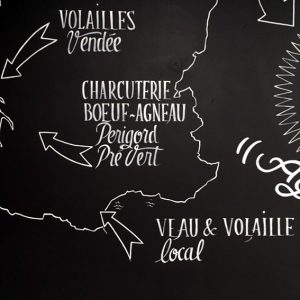 VOLAILLES
Vendée
CHARCUTERIE
BŒUF-AGNEAU
Périgord
Pré Vert
VEAU & VOLAILLE
local